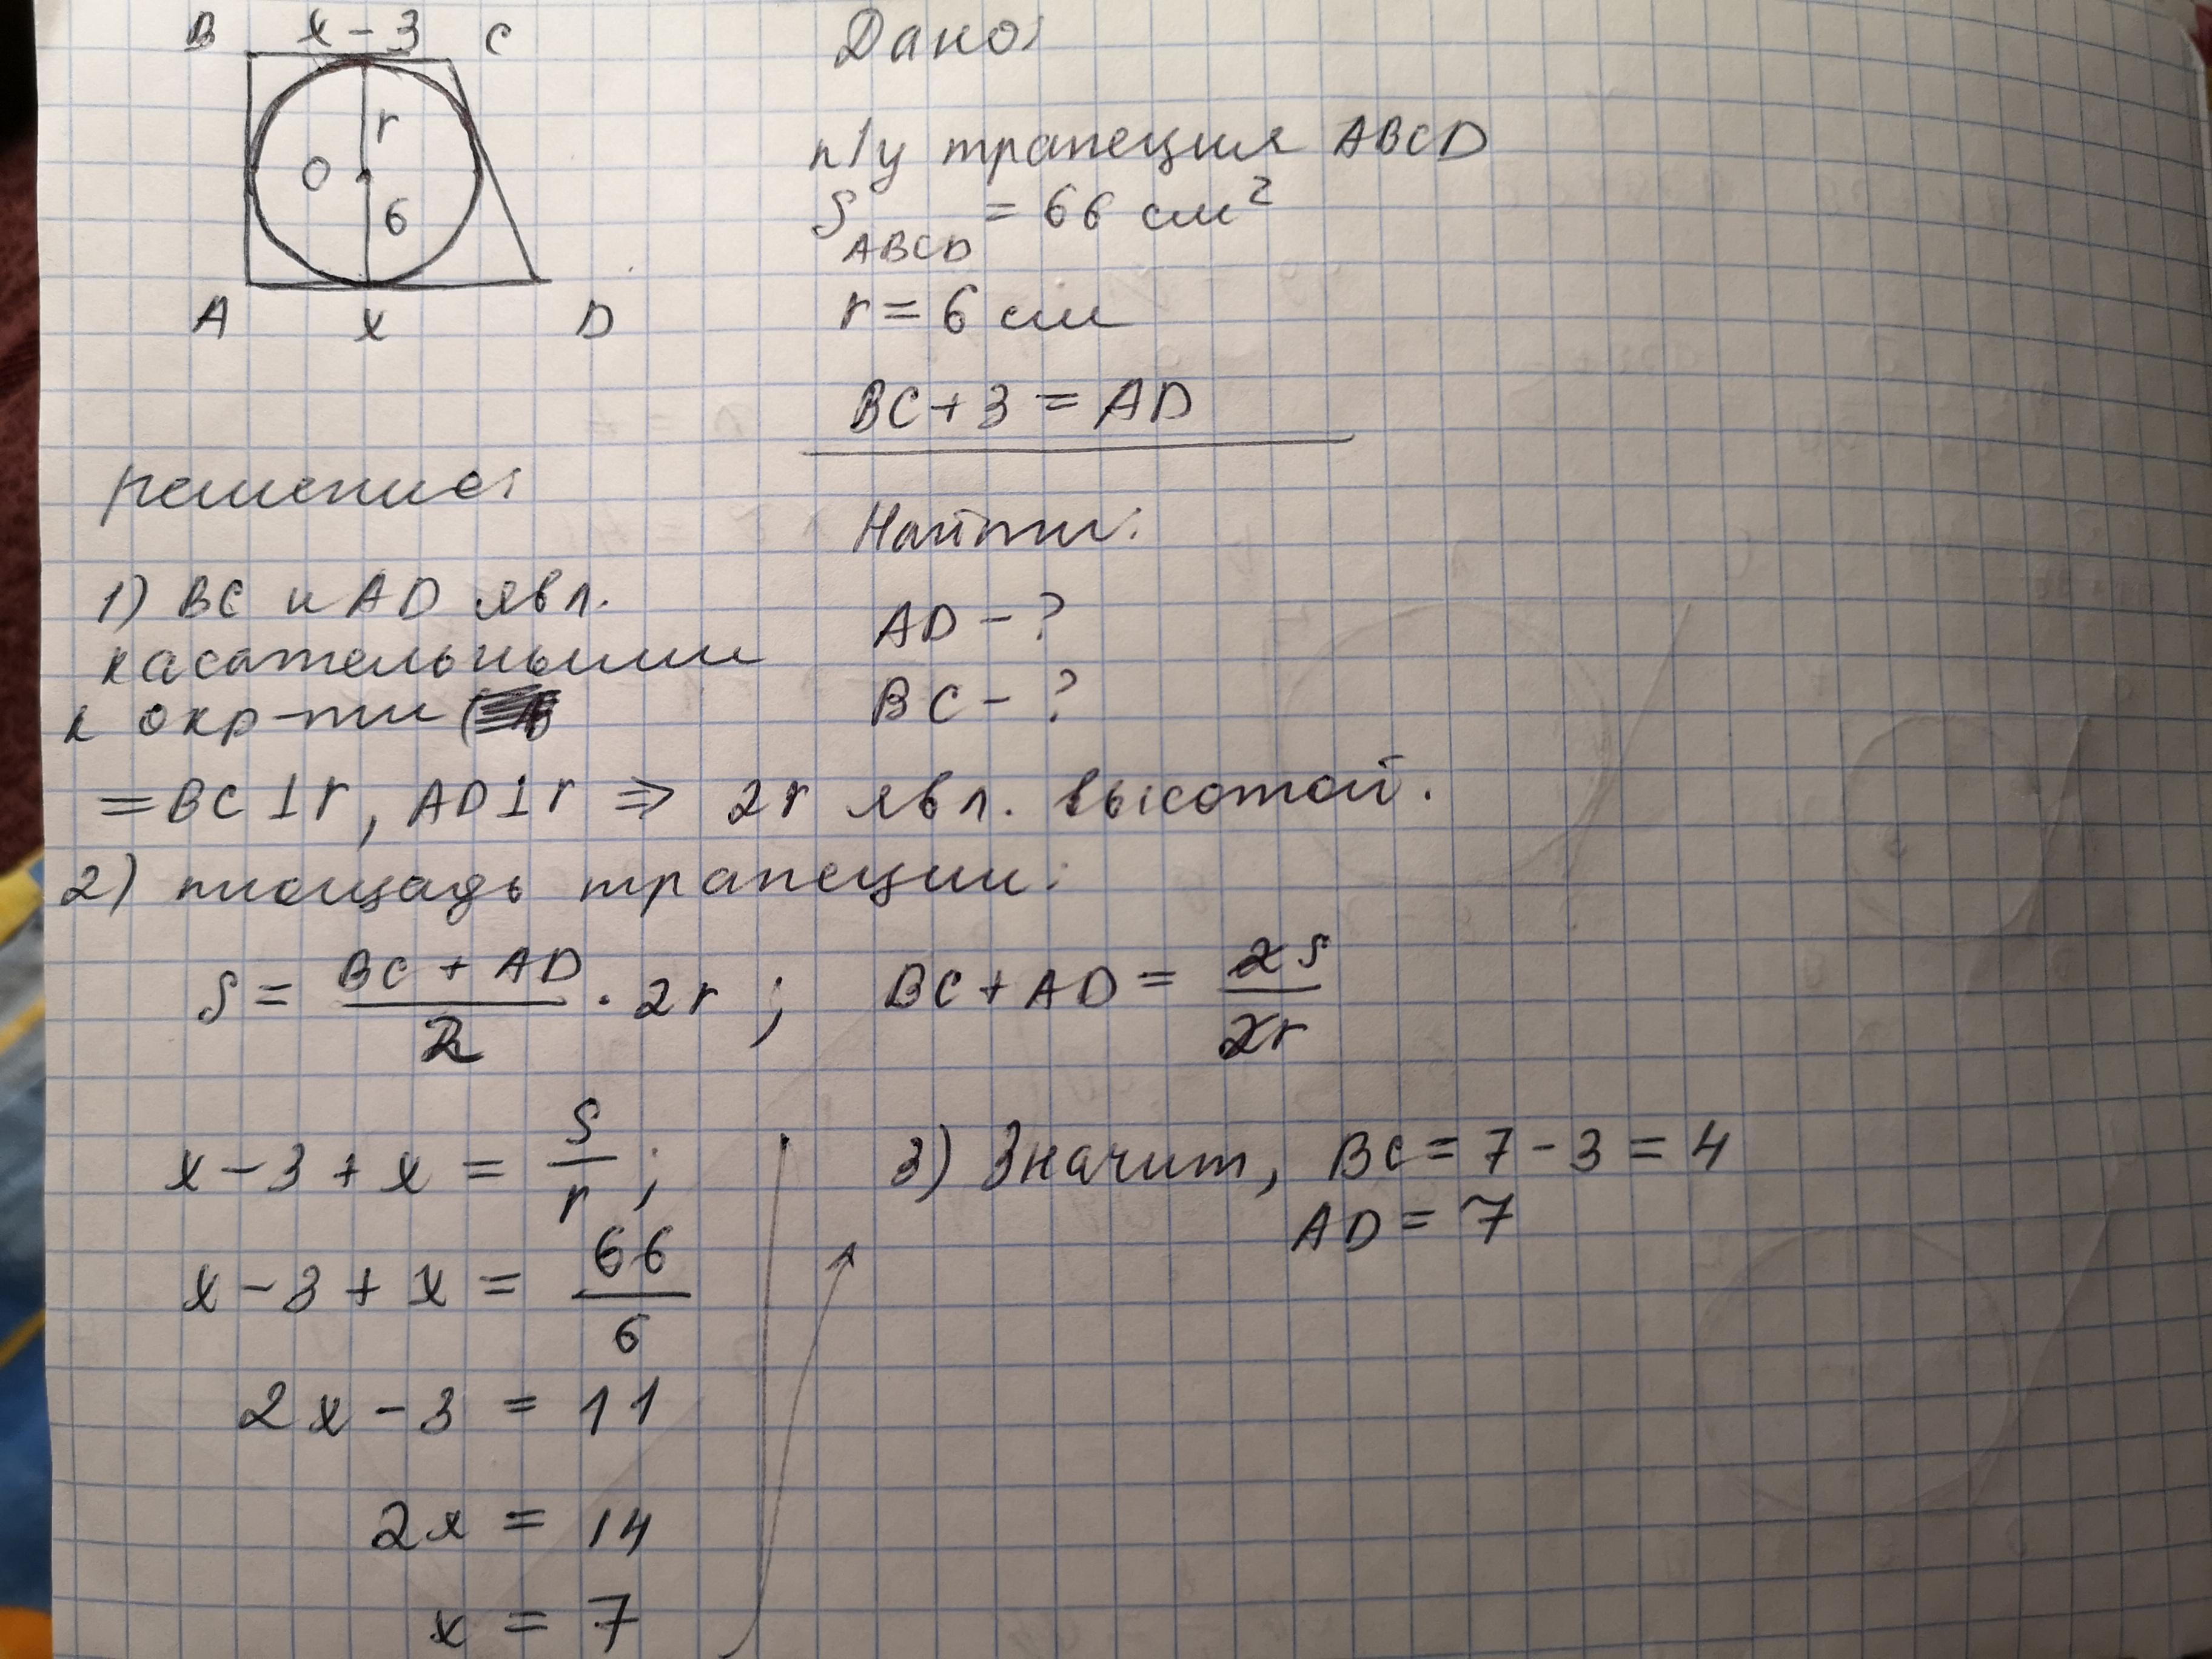 B x - 3 C
r
O
6
A x D
Дано:
п/у трапеция ABCD
S ABCD = 66 см²
r = 6 см
BC + 3 = AD
Найти:
AD - ?
BC - ?
решение:
1) BC и AD явл.
касательными
к окр-ти (
= BC ⊥ r, AD ⊥ r ⇒ 2r явл. высотой.
2) площадь трапеции:
S = \frac{BC + AD}{2} · 2r ; BC + AD = \frac{2S}{2r}
x - 3 + x = \frac{S}{r} ;
x - 3 + x = \frac{66}{6}
2x - 3 = 11
2x = 14
x = 7
3) Значит, BC = 7 - 3 = 4
AD = 7